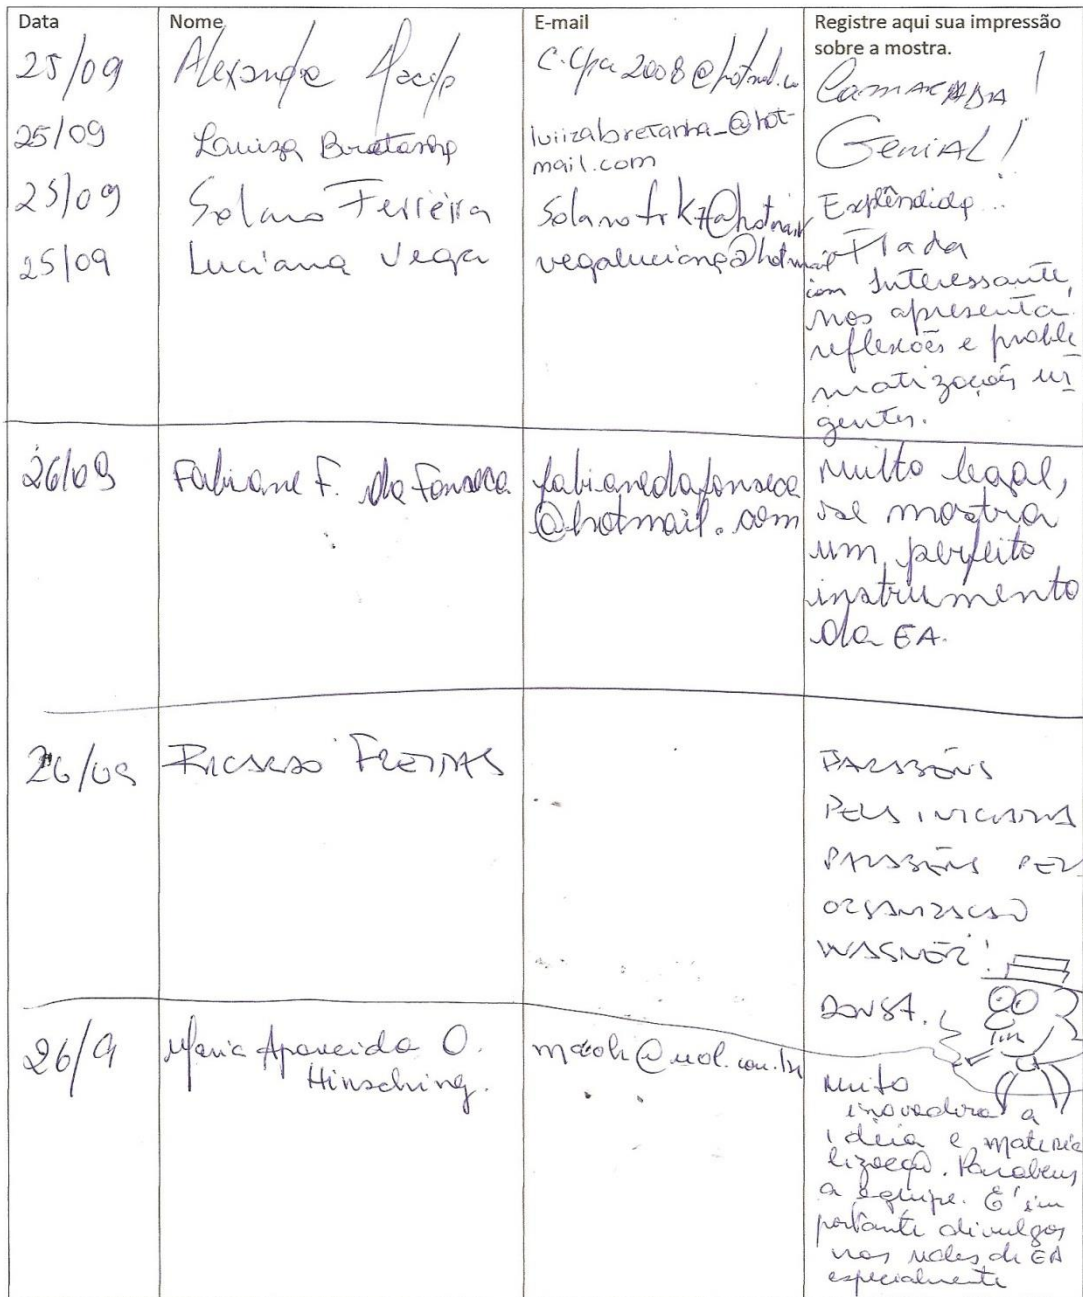 Data Nome E-mail Registre aqui sua impressão
sobre a mostra.
25/09 Alexandre @hotmail.co
25/09 Luiza Bretanha luiizabretanha_@hot-
mail.com
GENIAL!
25/09 Solano Ferreira Solanofrk7@hotmail Explêndida...
25/09 Luciana Vega vegaluciana@hotmail
com Interessante,
nos apresenta
reflexões e proble
matizações ur
gentes.
26/09 Fabiane F. da Fonseca fabianedafonseca
@hotmail.com
Muito legal,
se mostra
um perfeito
instrumento
da EA.
26/09 RICARDO FREITAS PARABÉNS
PELA INICIATIVA
PARABÉNS PELA
ORGANIZACAO
WAGNER!
26/9 Maria Aparecida O.
Hinsching.
maoh@uol.com.br
Muito
inovadora a
idéia e materia
lização. Parabens
a equipe. É im
portante divulgar
nas redes de EA
especialmente